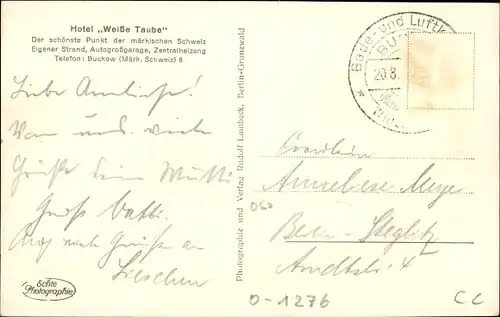 Hotel „Weiße Taube"
Der schönste Punkt der märkischen Schweiz
Eigener Strand, Autogroßgarage, Zentralheizung
Telefon: Buckow (Märk. Schweiz) 8
Liebe Anneliese!
Von uns viele
Grüße Mutti
Gruß Vatti.
Auch Grüße an
Lieschen
Echte
Photographie
Photographie und Verlag Rudolf Lambeck, Berlin-Grunewald
Bade- und Luftk
20.8.
Fräulein
Anneliese Meyer
Berlin-Steglitz
Arndtstr. 4
O-1276
CC